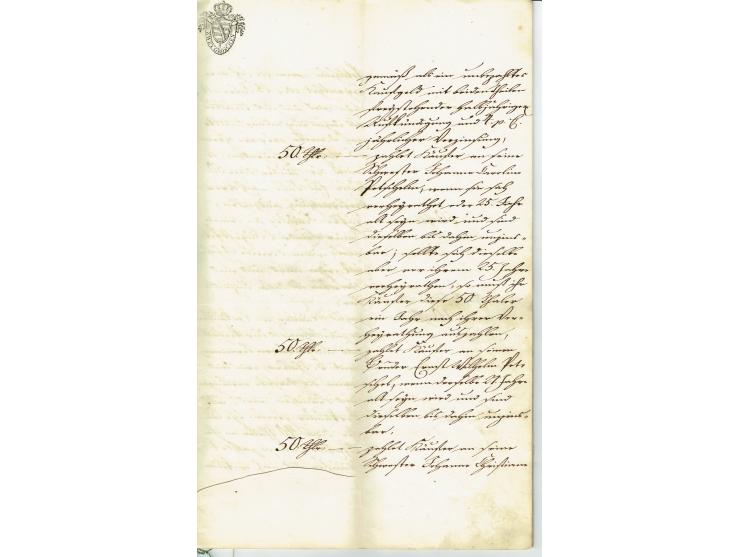 gemäß als ein unbezahltes
Kaufgeld mit beiden Theilen
freystehender halbjähriger
Aufkündigung und 4. p. C.
jährlicher Verzinsung,
50. Thlr. — zahlet Käufer an seine
Schwester Johanne Caroline
Petscheln, wenn sie sich
verheyrathet oder 25. Jahr
alt seyn wird und sind
dieselben bis dahin unzins-
bar; sollte sich dieselbe
aber vor ihrem 25. Jahre
verheyrathen, so muß ihr
Käufer diese 50 Thaler
ein Jahr nach ihrer Ver-
heyrathung auszahlen,
50. Thlr. — zahlet Käufer an seinen
Bruder Ernst Wilhelm Pet-
schel, wenn derselbe 21 Jahr
alt seyn wird und sind
dieselben bis dahin unzins-
bar.
50. Thlr. — zahlet Käufer an seine
Schwester Johanne Christiane